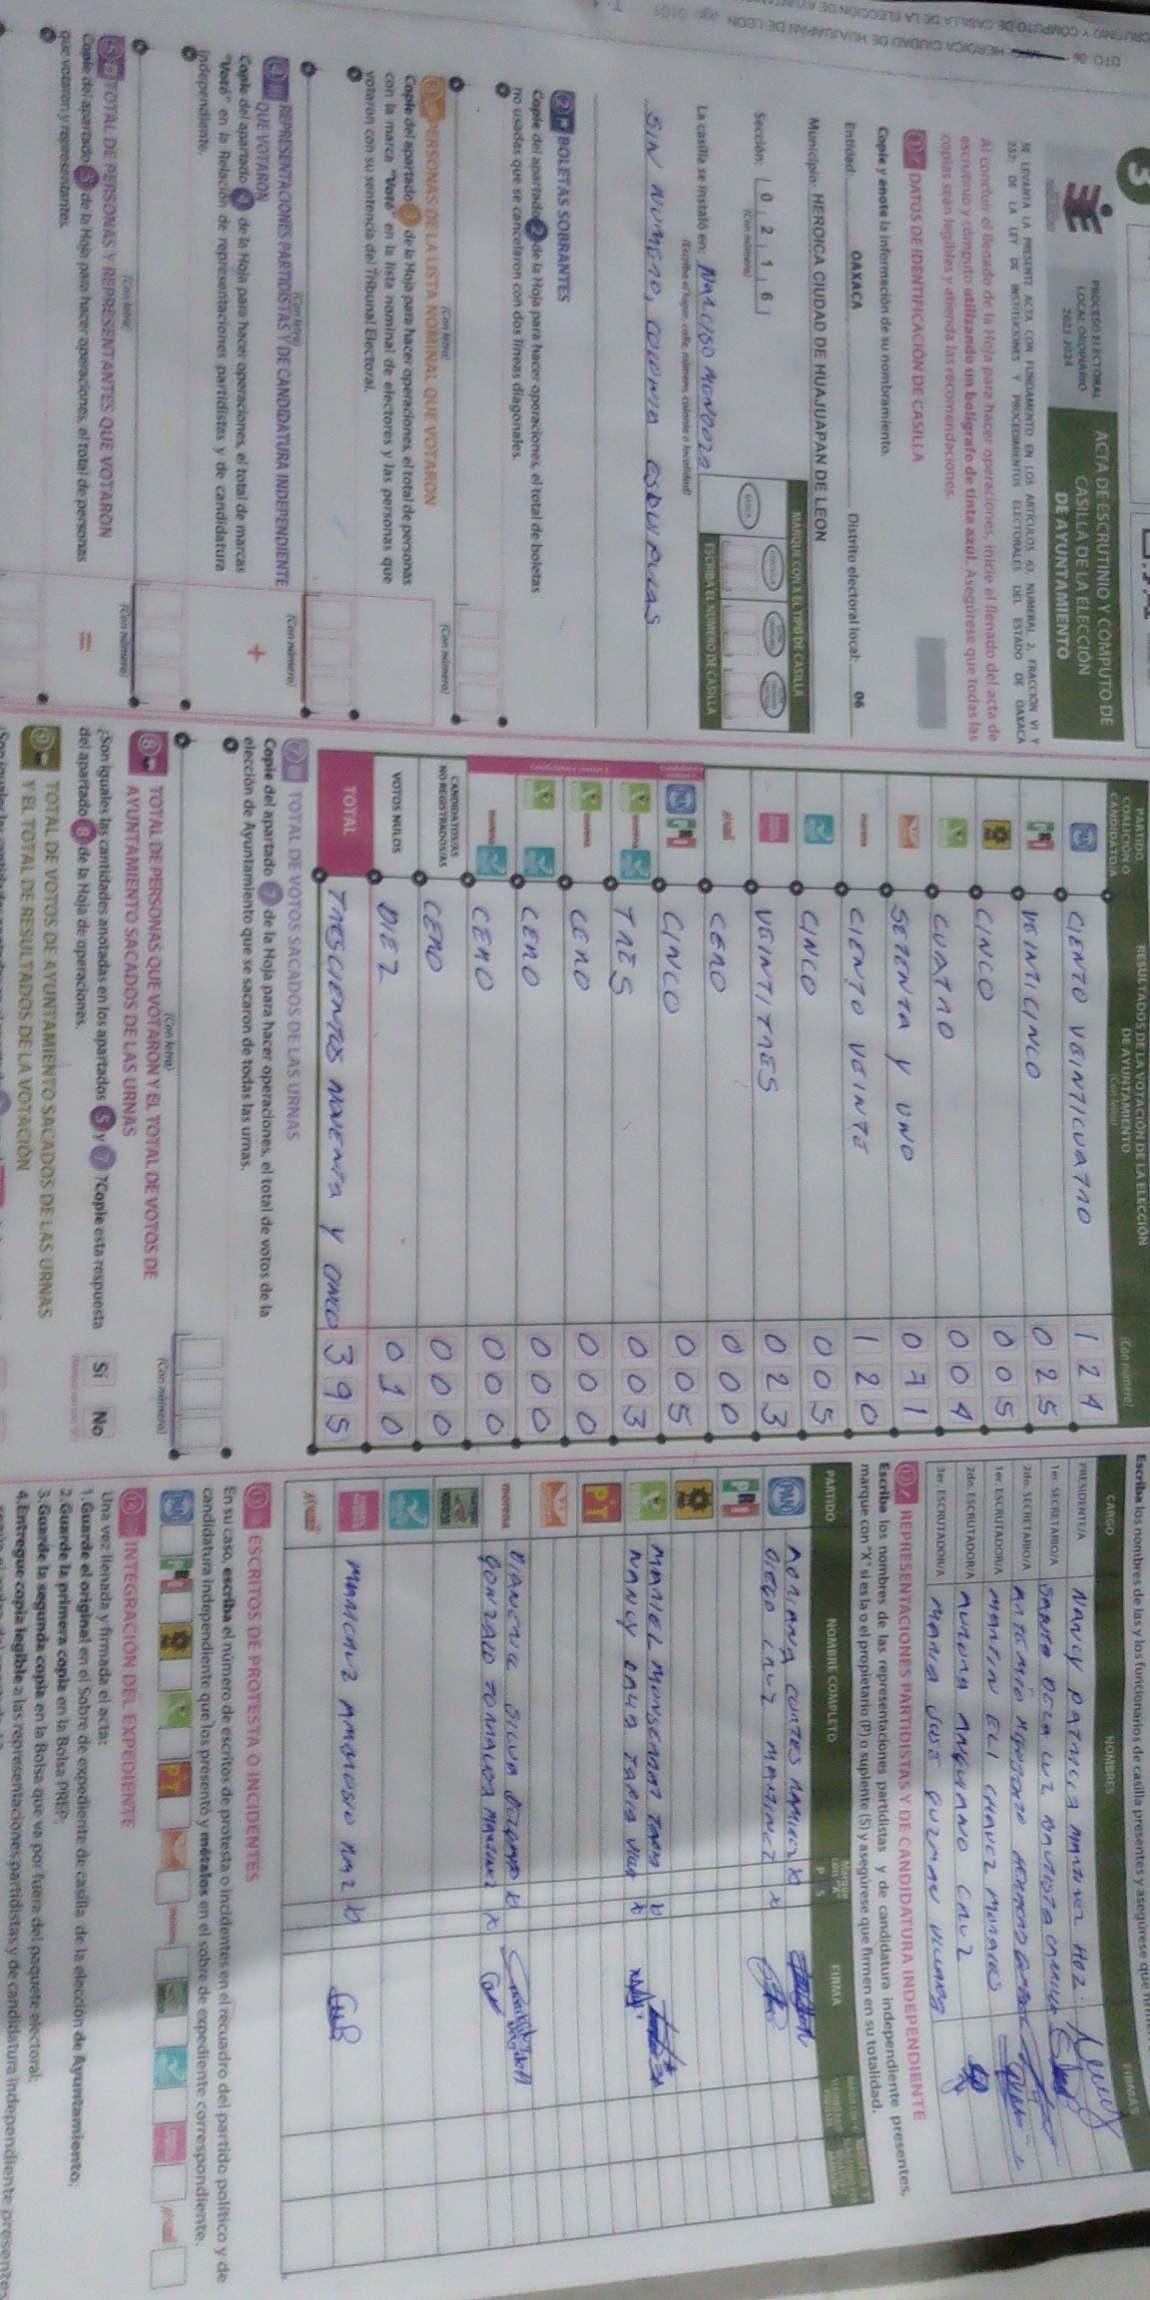 DTO. 06
HEROICA CIUDAD DE HUAJUAPAN DE LEON
3
PROCESO ELECTORAL
LOCAL ORDINARIO
2023-2024
ACTA DE ESCRUTINIO Y CÓMPUTO DE
CASILLA DE LA ELECCIÓN
DE AYUNTAMIENTO
SE LEVANTA LA PRESENTE ACTA CON FUNDAMENTO EN LOS ARTÍCULOS 63, NUMERAL 2, FRACCIÓN VI Y
237; DE LA LEY DE INSTITUCIONES Y PROCEDIMIENTOS ELECTORALES DEL ESTADO DE OAXACA
Al concluir el llenado de la Hoja para hacer operaciones, inicie el llenado del acta de
escrutinio y cómputo utilizando un bolígrafo de tinta azul. Asegúrese que todas las
copias sean legibles y atienda las recomendaciones.
1 DATOS DE IDENTIFICACIÓN DE CASILLA
Copie y anote la información de su nombramiento.
Entidad: OAXACA Distrito electoral local: 06
Municipio: HEROICA CIUDAD DE HUAJUAPAN DE LEON
Sección: 0 2 1 6
(Con número)
MARQUE CON X EL TIPO DE CASILLA
BÁSICA
ESCRIBA EL NÚMERO DE CASILLA
La casilla se instaló en: NARCISO MENDOZA
(Escriba el lugar, calle, número, colonia o localidad)
SIN NUMERO, COLONIA ESQUIPULAS
2 BOLETAS SOBRANTES
Copie del apartado 2 de la Hoja para hacer operaciones, el total de boletas
no usadas que se cancelaron con dos líneas diagonales.
(Con letra) (Con número)
3 PERSONAS DE LA LISTA NOMINAL QUE VOTARON
Copie del apartado 3 de la Hoja para hacer operaciones, el total de personas
con la marca "Votó" en la lista nominal de electores y las personas que
votaron con su sentencia del Tribunal Electoral.
(Con letra) (Con número)
4 REPRESENTACIONES PARTIDISTAS Y DE CANDIDATURA INDEPENDIENTE
QUE VOTARON
Copie del apartado 4 de la Hoja para hacer operaciones, el total de marcas
"Votó" en la Relación de representaciones partidistas y de candidatura
independiente.
+
(Con letra) (Con número)
5 TOTAL DE PERSONAS Y REPRESENTANTES QUE VOTARON
Copie del apartado 5 de la Hoja para hacer operaciones, el total de personas
que votaron y representantes.
=
PARTIDO, COALICIÓN O CANDIDATO/A
RESULTADOS DE LA VOTACIÓN DE LA ELECCIÓN
DE AYUNTAMIENTO
(Con letra) (Con número)
PAN CIENTO VEINTICUATRO 1 2 4
PRI VEINTICINCO 0 2 5
CINCO 0 0 5
CUATRO 0 0 4
SETENTA Y UNO 0 7 1
morena CIENTO VEINTE 1 2 0
CINCO 0 0 5
VEINTITRES 0 2 3
CERO 0 0 0
PAN PRI CINCO 0 0 5
morena TRES 0 0 3
morena CERO 0 0 0
CERO 0 0 0
morena CERO 0 0 0
CANDIDATOS/AS NO REGISTRADOS/AS CERO 0 0 0
VOTOS NULOS DIEZ 0 1 0
TOTAL TRESCIENTOS NOVENTA Y CINCO 3 9 5
7 TOTAL DE VOTOS SACADOS DE LAS URNAS
Copie del apartado 7 de la Hoja para hacer operaciones, el total de votos de la
elección de Ayuntamiento que se sacaron de todas las urnas.
(Con letra) (Con número)
8 TOTAL DE PERSONAS QUE VOTARON Y EL TOTAL DE VOTOS DE
AYUNTAMIENTO SACADOS DE LAS URNAS
¿Son iguales las cantidades anotadas en los apartados 5 y 7 ?Copie esta respuesta
del apartado 8 de la Hoja de operaciones.
Sí No
9 TOTAL DE VOTOS DE AYUNTAMIENTO SACADOS DE LAS URNAS
Y EL TOTAL DE RESULTADOS DE LA VOTACIÓN
Escriba los nombres de las y los funcionarios de casilla presentes y asegúrese que
CARGO NOMBRES FIRMAS
PRESIDENTE/A NANCY PATRICIA MARTINEZ HDZ.
1er. SECRETARIO/A BAUTISTA
2do. SECRETARIO/A ARTEMIO
1er. ESCRUTADOR/A MARTIN ELI CHAVEZ MORALES
2do. ESCRUTADOR/A AURORA ANGUIANO CRUZ
3er. ESCRUTADOR/A MARIA JOSE GUZMAN
REPRESENTACIONES PARTIDISTAS Y DE CANDIDATURA INDEPENDIENTE
Escriba los nombres de las representaciones partidistas y de candidatura independiente presentes,
marque con "X" si es la o el propietario (P) o suplente (S) y asegúrese que firmen en su totalidad.
PARTIDO NOMBRE COMPLETO Marque con "X" P S FIRMA
PAN ADRIANA CORTES RAMIREZ X
DIEGO CRUZ MARTINEZ X
PRI
MARIEL MONSERRAT TAPIA
NANCY TAPIA X
PT
morena
GONZALO TORRALBA MARTINEZ X
MARICRUZ AMBROSIO RMZ
ESCRITOS DE PROTESTA O INCIDENTES
En su caso, escriba el número de escritos de protesta o incidentes en el recuadro del partido político y de
candidatura independiente que los presentó y métalos en el sobre de expediente correspondiente.
PAN PRI PT morena
INTEGRACIÓN DEL EXPEDIENTE
Una vez llenada y firmada el acta:
1.Guarde el original en el Sobre de expediente de casilla de la elección de Ayuntamiento;
2.Guarde la primera copia en la Bolsa PREP;
3.Guarde la segunda copia en la Bolsa que va por fuera del paquete electoral;
4.Entregue copia legible a las representaciones partidistas y de candidatura independiente presentes